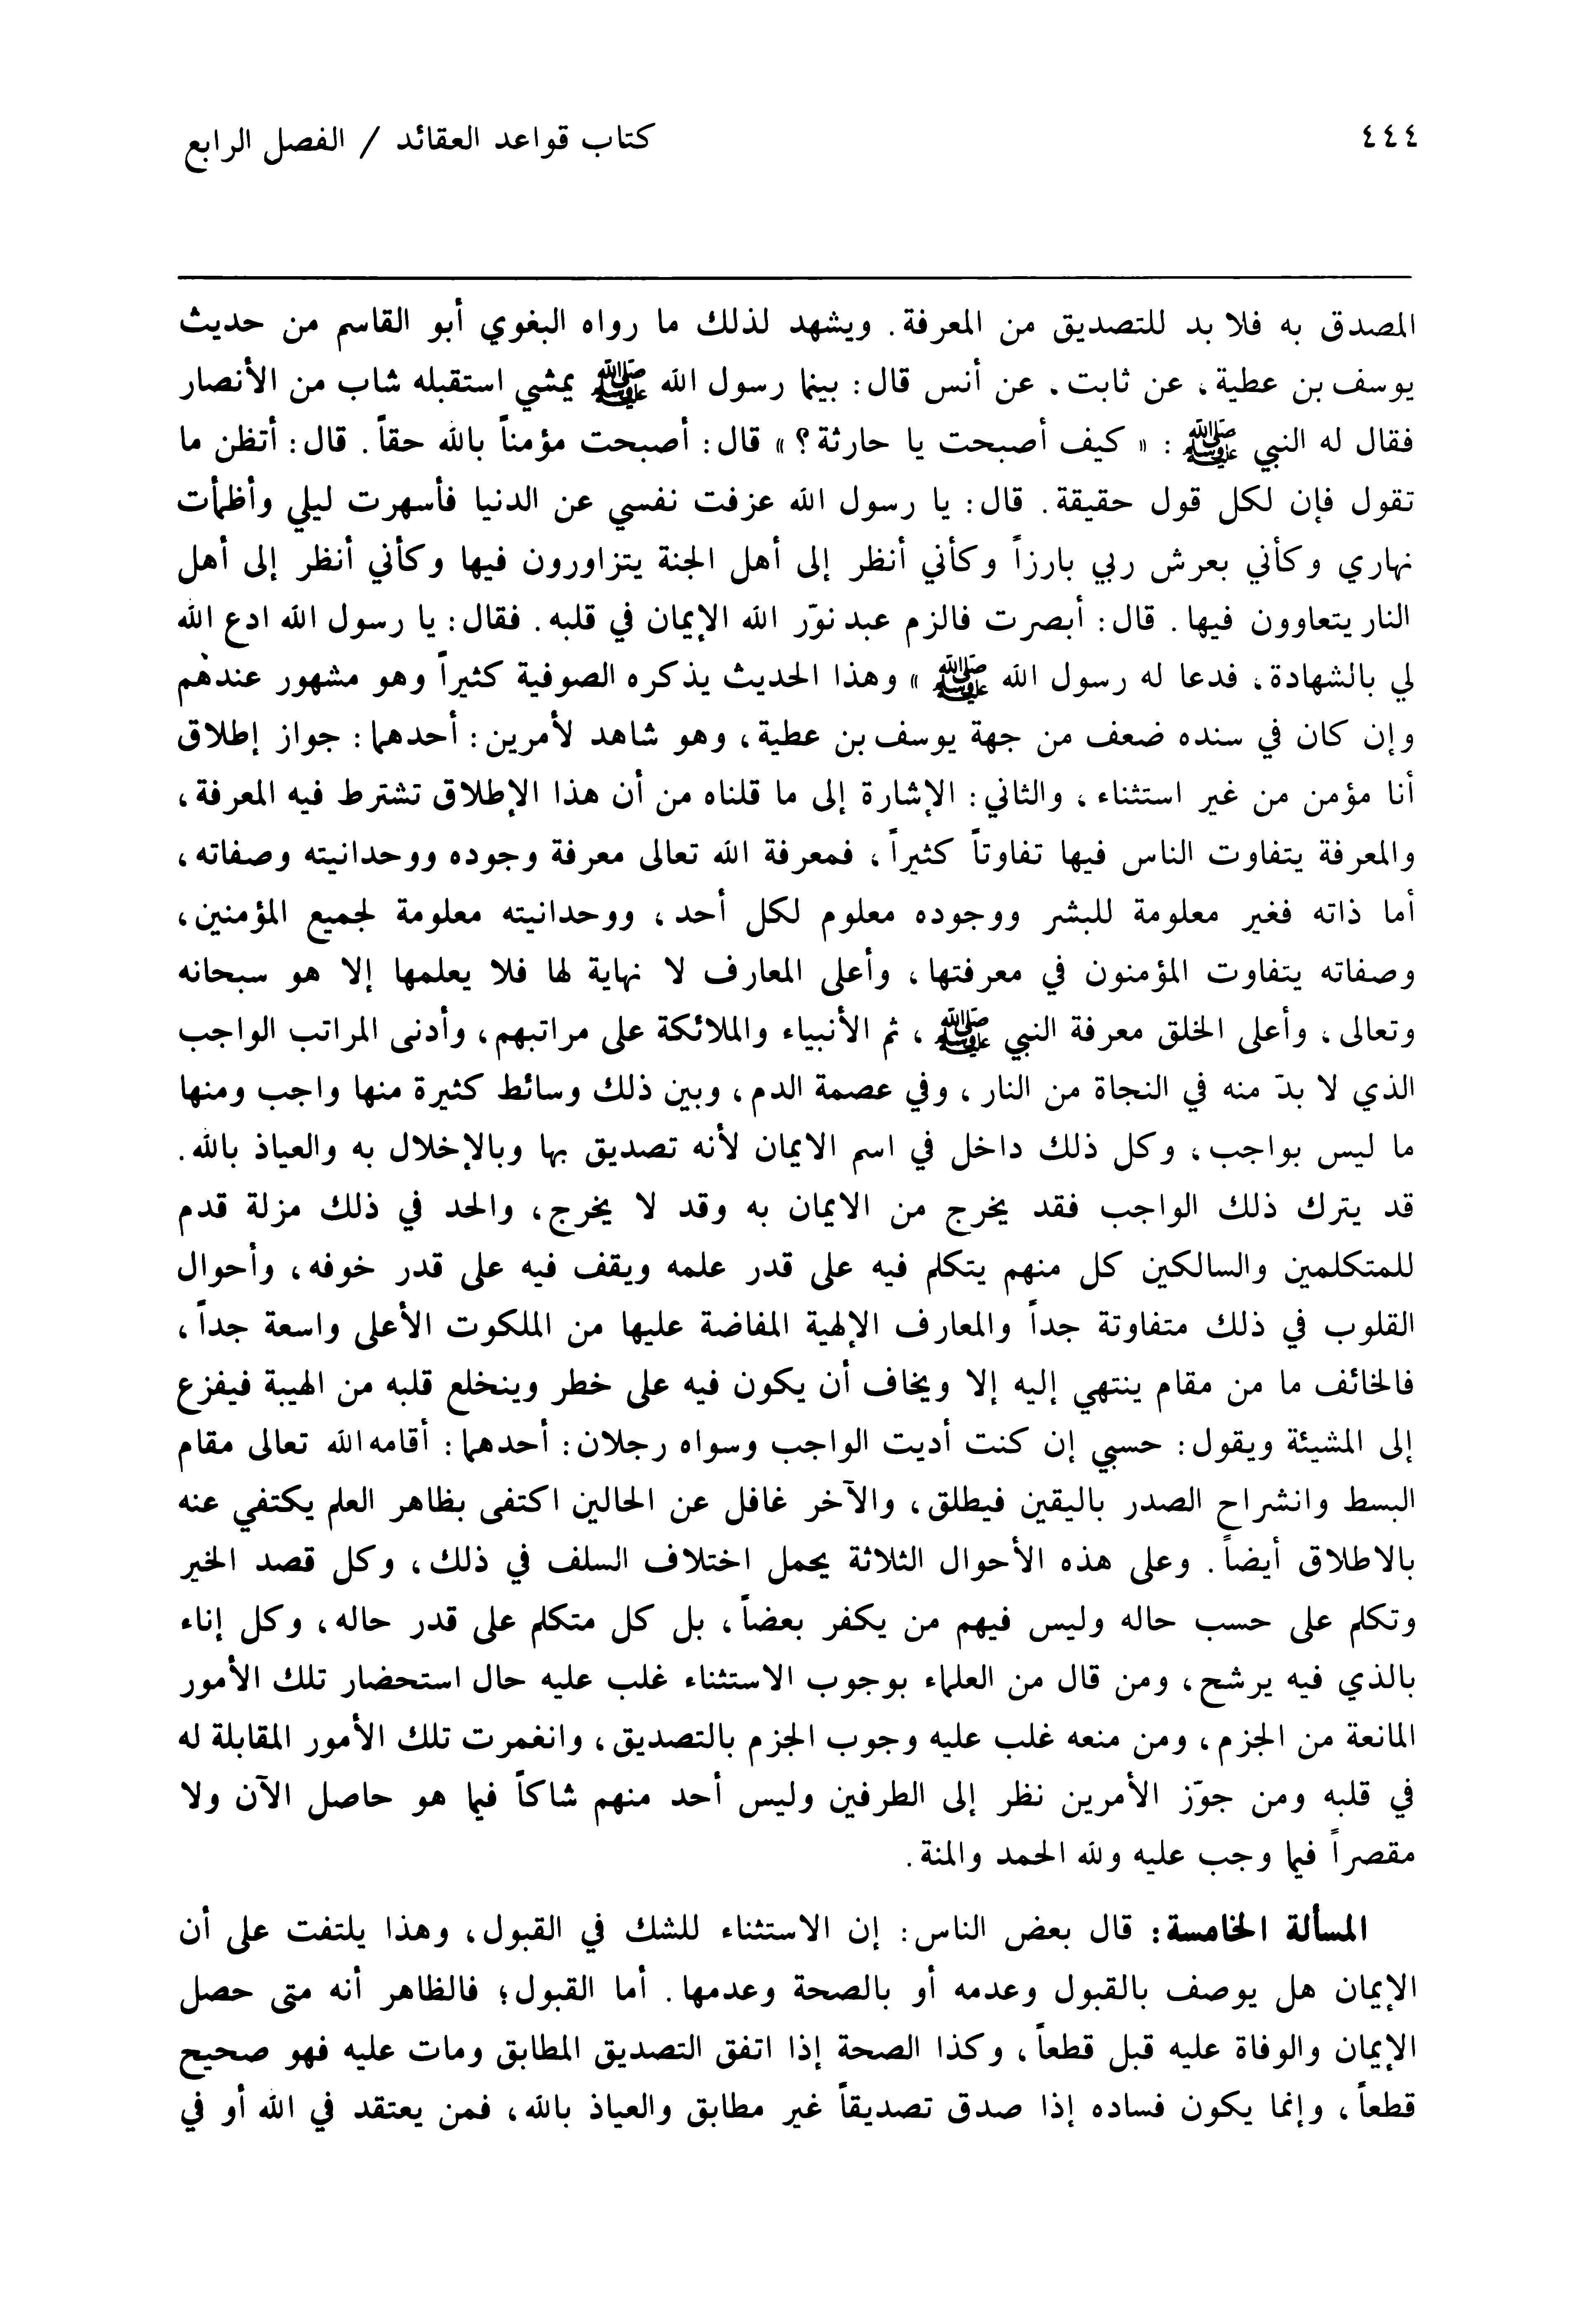 ٤٤٤
كتاب قواعد العقائد / الفصل الرابع
المصدق به فلا بد للتصديق من المعرفة. ويشهد لذلك ما رواه البغوي أبو القاسم من حديث
يوسف بن عطية، عن ثابت، عن أنس قال: بينما رسول الله ﷺ يمشي استقبله شاب من الأنصار
فقال له النبي ﷺ: «كيف أصبحت يا حارثة؟» قال: أصبحت مؤمناً بالله حقاً. قال: أتظن ما
تقول فإن لكل قول حقيقة. قال: يا رسول الله عزفت نفسي عن الدنيا فأسهرت ليلي وأظمأت
نهاري وكأني بعرش ربي بارزاً وكأني أنظر إلى أهل الجنة يتزاورون فيها وكأني أنظر إلى أهل
النار يتعاوون فيها. قال: أبصرت فالزم عبد نوّر الله الإيمان في قلبه. فقال: يا رسول الله ادع الله
لي بالشهادة، فدعا له رسول الله ﷺ» وهذا الحديث يذكره الصوفية كثيراً وهو مشهور عندهم
وإن كان في سنده ضعف من جهة يوسف بن عطية، وهو شاهد لأمرين: أحدهما: جواز إطلاق
أنا مؤمن من غير استثناء، والثاني: الإشارة إلى ما قلناه من أن هذا الإطلاق تشترط فيه المعرفة،
والمعرفة يتفاوت الناس فيها تفاوتاً كثيراً، فمعرفة الله تعالى معرفة وجوده ووحدانيته وصفاته،
أما ذاته فغير معلومة للبشر ووجوده معلوم لكل أحد، ووحدانيته معلومة لجميع المؤمنين،
وصفاته يتفاوت المؤمنون في معرفتها، وأعلى المعارف لا نهاية لها فلا يعلمها إلا هو سبحانه
وتعالى، وأعلى الخلق معرفة النبي ﷺ، ثم الأنبياء والملائكة على مراتبهم، وأدنى المراتب الواجب
الذي لا بدّ منه في النجاة من النار، وفي عصمة الدم، وبين ذلك وسائط كثيرة منها واجب ومنها
ما ليس بواجب، وكل ذلك داخل في اسم الايمان لأنه تصديق بها وبالإخلال به والعياذ بالله.
قد يترك ذلك الواجب فقد يخرج من الايمان به وقد لا يخرج، والحد في ذلك مزلة قدم
للمتكلمين والسالكين كل منهم يتكلم فيه على قدر علمه ويقف فيه على قدر خوفه، وأحوال
القلوب في ذلك متفاوتة جداً والمعارف الإلهية المفاضة عليها من الملكوت الأعلى واسعة جداً،
فالخائف ما من مقام ينتهي إليه إلا ويخاف أن يكون فيه على خطر وينخلع قلبه من الهيبة فيفزع
إلى المشيئة ويقول: حسبي إن كنت أديت الواجب وسواه رجلان: أحدهما: أقامه الله تعالى مقام
البسط وانشراح الصدر باليقين فيطلق، والآخر غافل عن الحالين اكتفى بظاهر العلم يكتفي عنه
بالاطلاق أيضاً. وعلى هذه الأحوال الثلاثة يحمل اختلاف السلف في ذلك، وكل قصد الخير
وتكلم على حسب حاله وليس فيهم من يكفر بعضاً، بل كل متكلم على قدر حاله، وكل إناء
بالذي فيه يرشح، ومن قال من العلماء بوجوب الاستثناء غلب عليه حال استحضار تلك الأمور
المانعة من الجزم، ومن منعه غلب عليه وجوب الجزم بالتصديق، وانغمرت تلك الأمور المقابلة له
في قلبه ومن جوّز الأمرين نظر إلى الطرفين وليس أحد منهم شاكاً فيما هو حاصل الآن ولا
مقصراً فيما وجب عليه ولله الحمد والمنة.
المسألة الخامسة: قال بعض الناس: إن الاستثناء للشك في القبول، وهذا يلتفت على أن
الإيمان هل يوصف بالقبول وعدمه أو بالصحة وعدمها. أما القبول؛ فالظاهر أنه متى حصل
الإيمان والوفاة عليه قبل قطعاً، وكذا الصحة إذا اتفق التصديق المطابق ومات عليه فهو صحيح
قطعاً، وإنما يكون فساده إذا صدق تصديقاً غير مطابق والعياذ بالله، فمن يعتقد في الله أو في